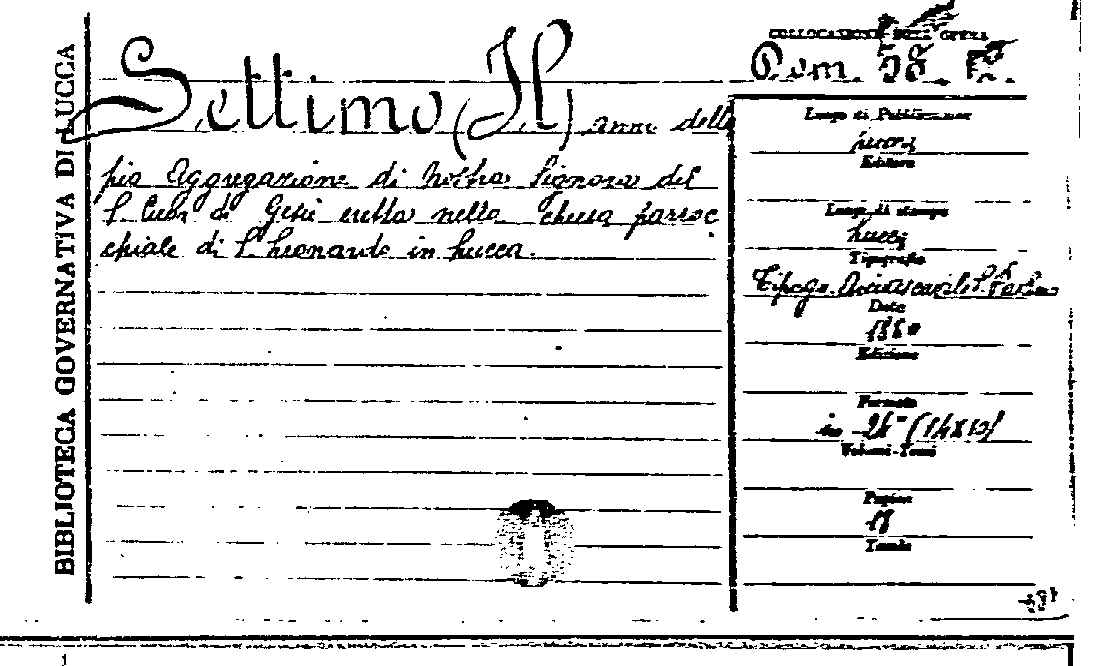 BIBLIOTECA GOVERNATIVA DI LUCCA
Settimo (Il) anno della
pia Aggregazione di Nostra Signora del
S. Cuor di Gesù eretta nella chiesa parroc
chiale di S. Leonardo in Lucca.
COLLOCAZIONE DELL'OPERA
Dom. 58.
Luogo di Pubblicazione
Lucca
Editore
Luogo di stampa
Lucca
Tipografia
Tipogr. Arcivescovile S. Paolino
Data
Edizione
Formato
in 24° (14X10)
Volumi-Tomi
Pagine
18
Tavole
1